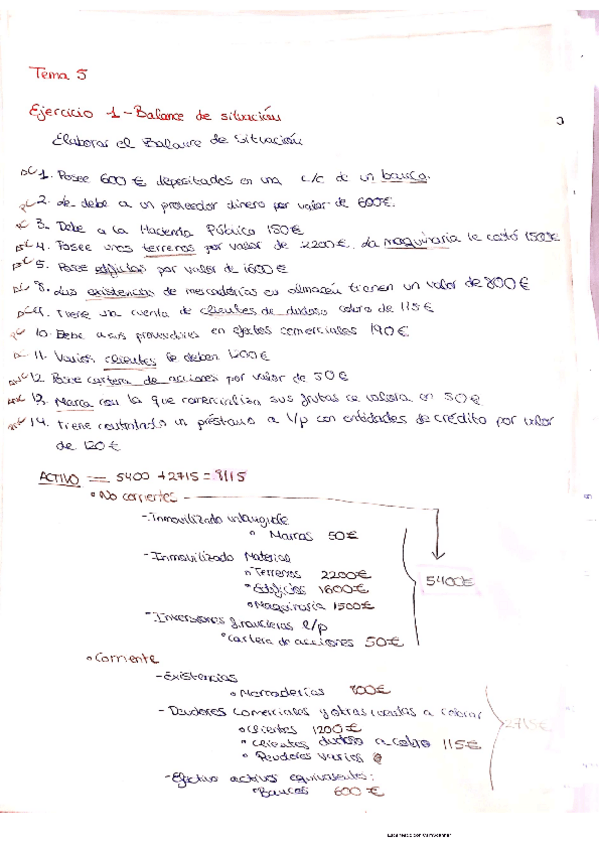 Tema 5
Ejercicio 1 - Balance de situación
Elaborar el Balance de Situación
1. Posee 600 € depositados en una c/c de un banco.
2. de debe a un proveedor dinero por valor de 600€.
3. Debe a la Hacienda Pública 150€
4. Posee unos terrenos por valor de 2200€, La maquinaria le costó 1500€
5. Posee edificios por valor de 1600€
8. Las existencias de mercaderías en almacén tienen un valor de 800€
Tiene una cuenta de clientes de dudoso cobro de 115€
10. Debe a sus proveedores en efectos comerciales 190€
11. Varios clientes le deben 1200€
12. Posee cartera de acciones por valor de 50€
13. Marca con la que comercializa sus frutas se valora en 50€
14. Tiene contratado un préstamo a l/p con entidades de crédito por valor
de 120€
ACTIVO = 5400 + 2715 = 8115
No corrientes
- Inmovilizado intangible
Marcas 50€
- Inmovilizado Material
Terrenos 2200€
Edificios 1600€
Maquinaria 1500€
5400€
- Inversiones financieras l/p
Cartera de acciones 50€
Corriente
- Existencias
Mercaderías 800€
- Deudores comerciales y otras cuentas a cobrar
Clientes 1200€
2715€
Clientes dudoso cobro 115€
Deudores varios
- Efectivo activos equivalentes:
Bancos 600€